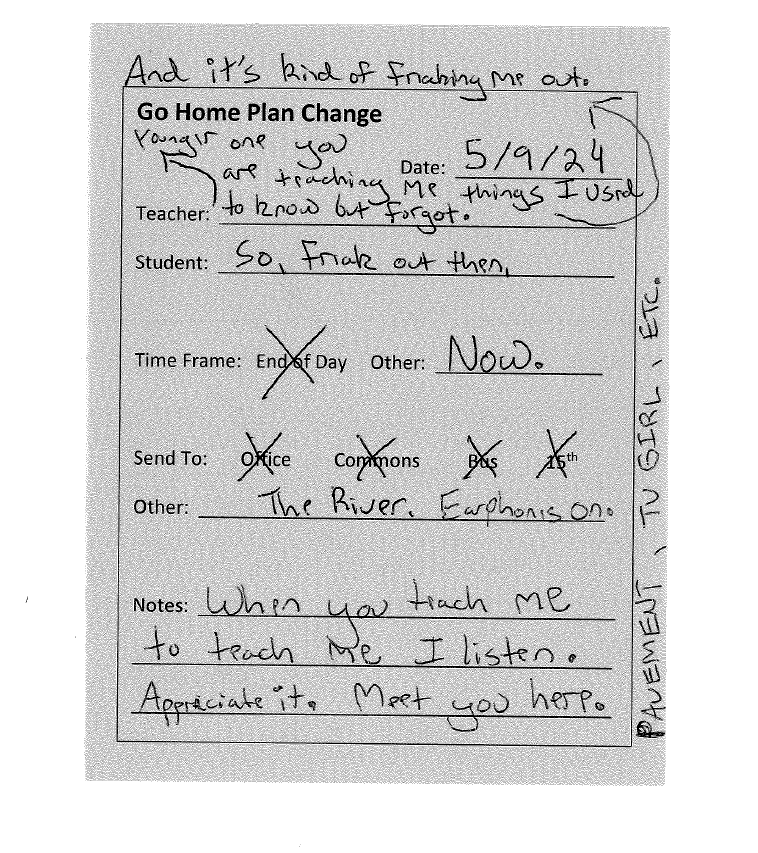 And it's kind of freaking me out.
Go Home Plan Change
Younger one you
are teaching me things I used
Date: 5/9/24
Teacher: to know but forgot.
Student: So, Freak out then,
Time Frame: End of Day Other: Now.
Send To: Office Commons Bus 15th
Other: The River. Earphones on.
Notes: When you teach me
to teach me I listen.
Appreciate it. Meet you here.
PAVEMENT, TV GIRL, ETC.